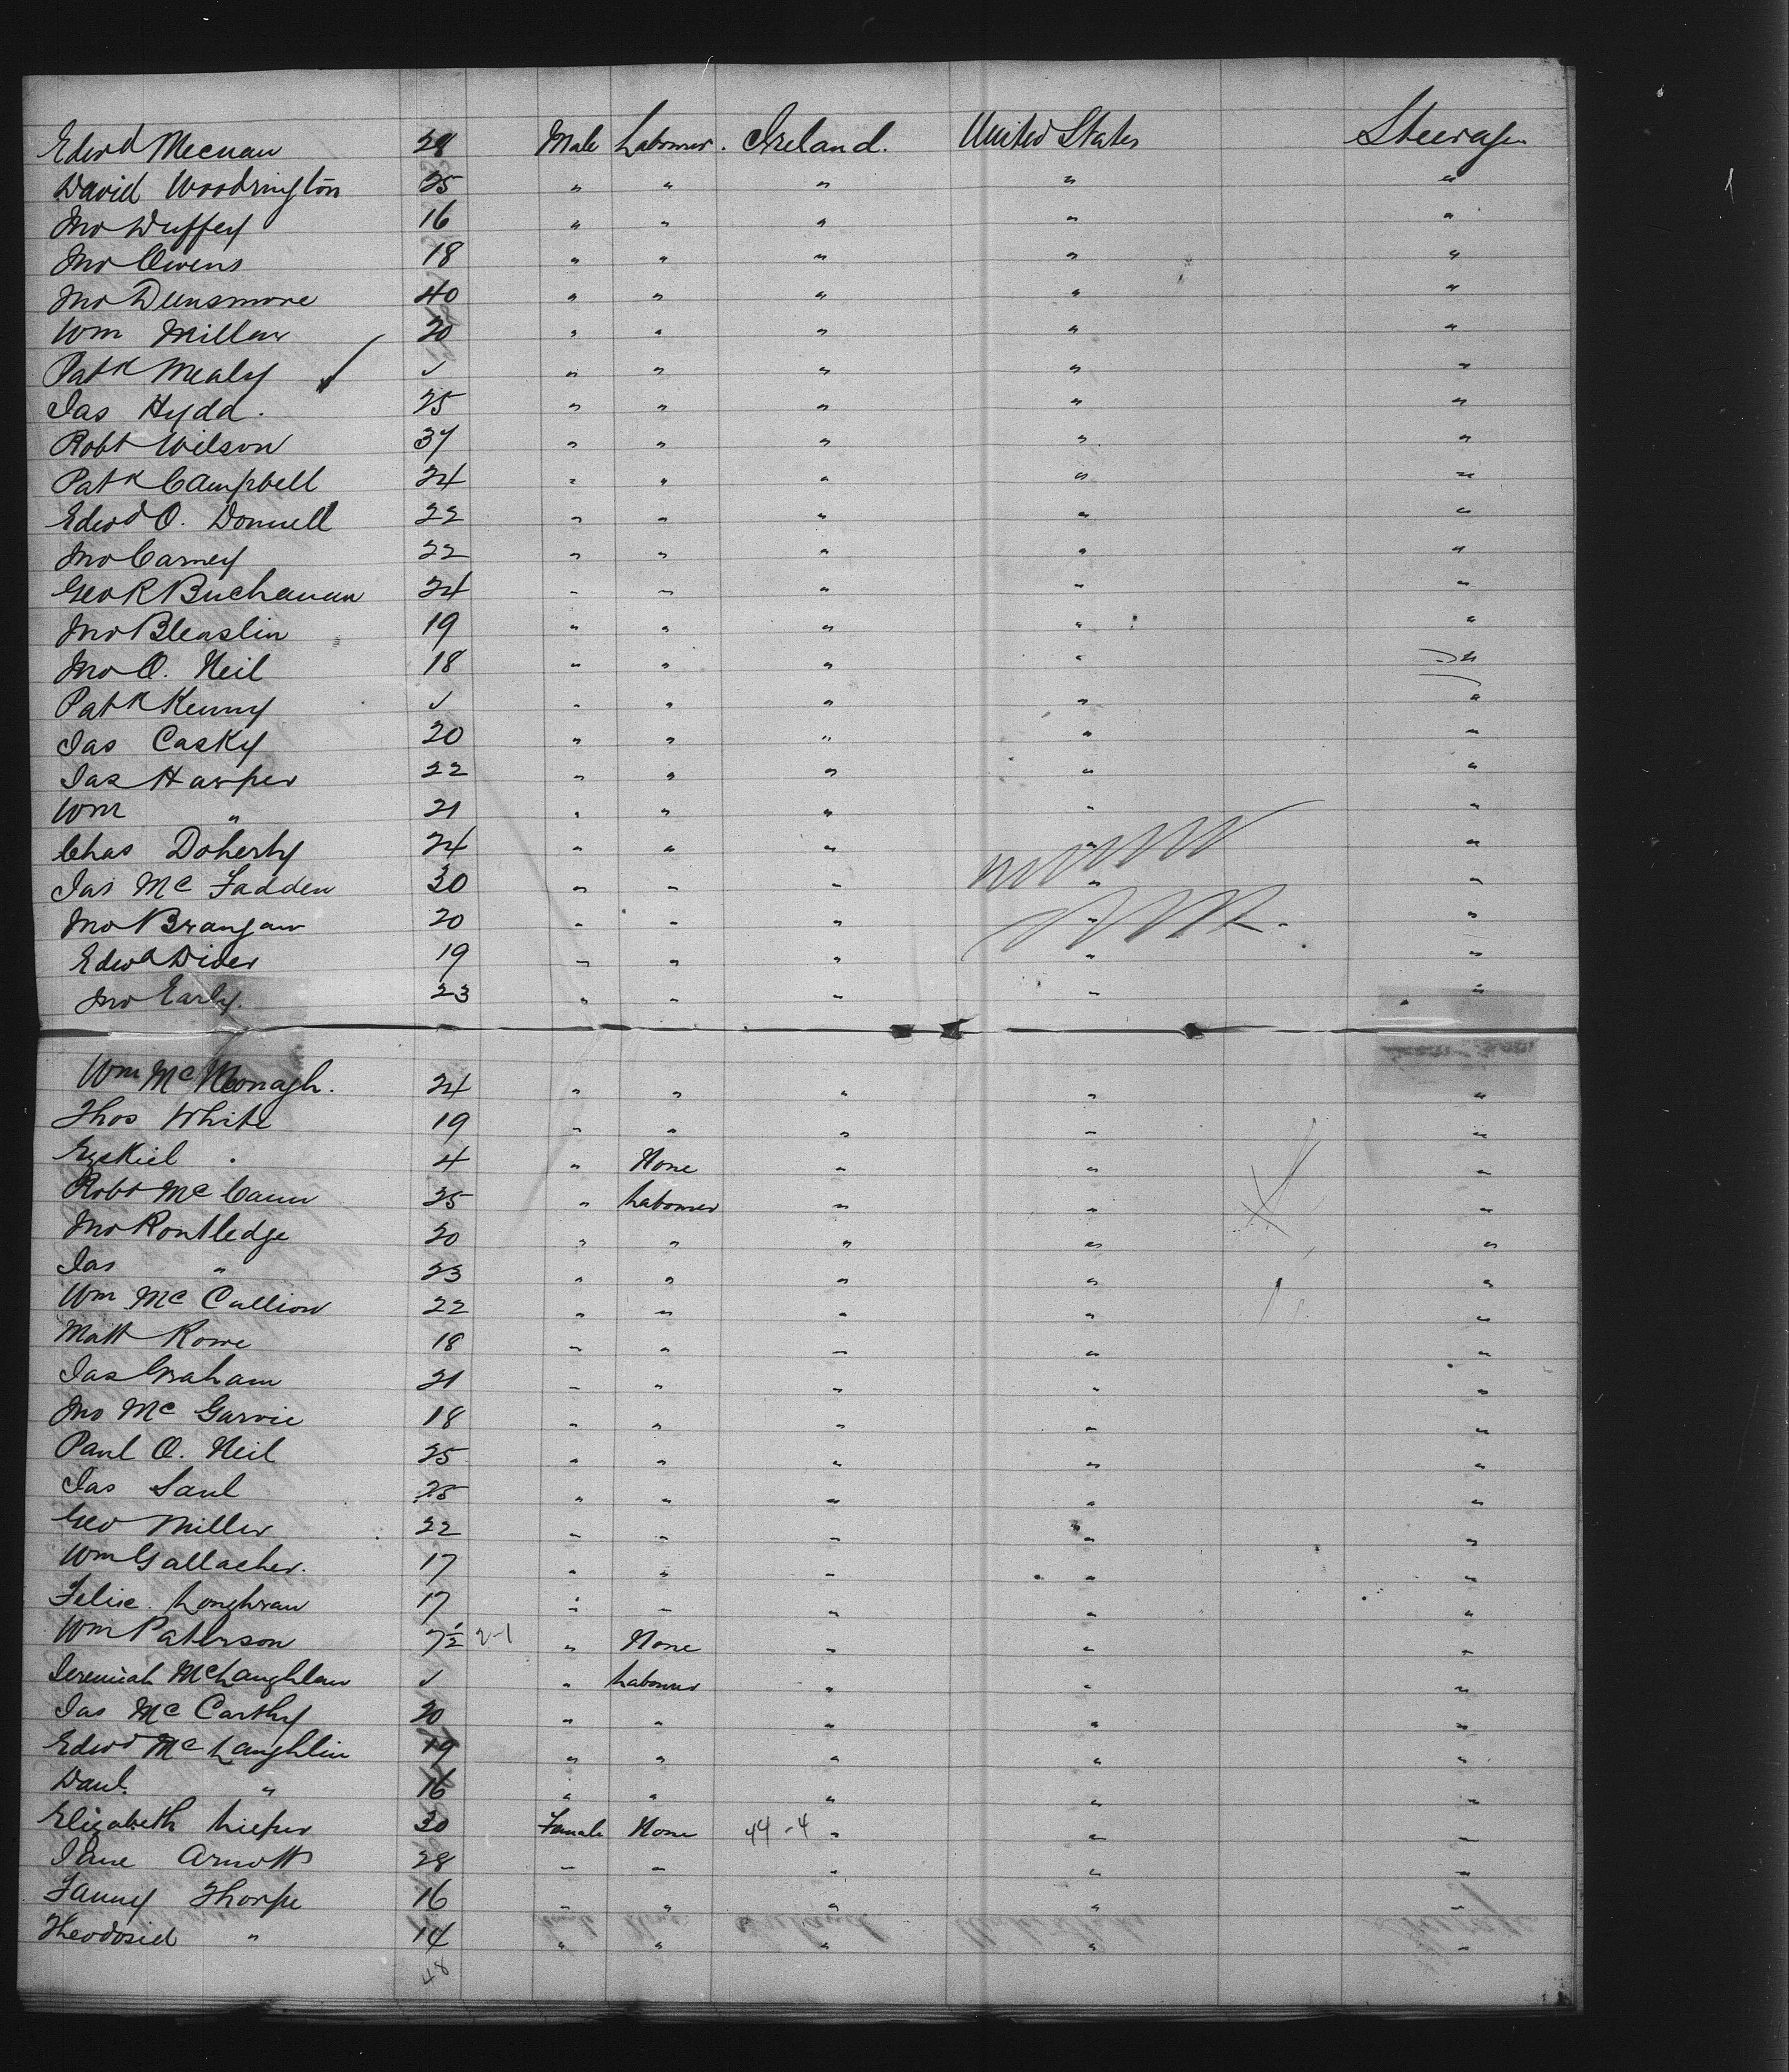 Edwd Meenan 28 Male Labourer. Ireland. United States Steerage
David Woodrington 25 " " " " "
Jno Duffey 16 " " " " "
Jno Owens 18 " " " " "
Jno Dunsmore 40 " " " " "
Wm Millar 20 " " " " "
Patk Mealy ✓ " " " " "
Jas Hydd. 25 " " " " "
Robt Wilson 37 " " " " "
Patk Campbell 24 " " " " "
Edwd O. Donnell 22 " " " " "
Jno Carney 22 " " " " "
Geo R Buchanan 24 " " " " "
Jno Bleaslin 19 " " " " "
Jno O. Neil 18 " " " " "
Patk Kenny ✓ " " " " "
Jas Casky 20 " " " " "
Jas Harper 22 " " " " "
Wm " 21 " " " " "
Chas Doherty 24 " " " " "
Jas Mc Fadden 30 " " " " "
Jno Brangan 20 " " " " "
Edwd Diver 19 " " " " "
Jno Early. 23 " " " " "
Wm Mc Monagh. 24 " " " " "
Thos White 19 " " " " "
Ezekiel " 4 " None " " "
Robt Mc Cann 25 " Labourer " " "
Jno Routledge 20 " " " " "
Jas " 23 " " " " "
Wm Mc Callion 22 " " " " "
Matt Rowe 18 " " " " "
Jas Graham 21 " " " " "
Jno Mc Garvie 18 " " " " "
Paul O. Neil 25 " " " " "
Jas Saul 25 " " " " "
Geo Miller 22 " " " " "
Wm Gallacher. 17 " " " " "
Felix Loughran 17 " " " " "
Wm Paterson 7½ 2-1 " None " " "
Jeremiah McLaughlan ✓ " Labourer " " "
Jas Mc Carthy 20 " " " " "
Edwd Mc Laughlin 19 " " " " "
Danl. " 16 " " " " "
Elizabeth 30 Female None 44-4 " " "
Jane Arnott 28 " " " " "
Fanny Thorpe 16 " " " " "
Theodosid " 14 " " " " "
48